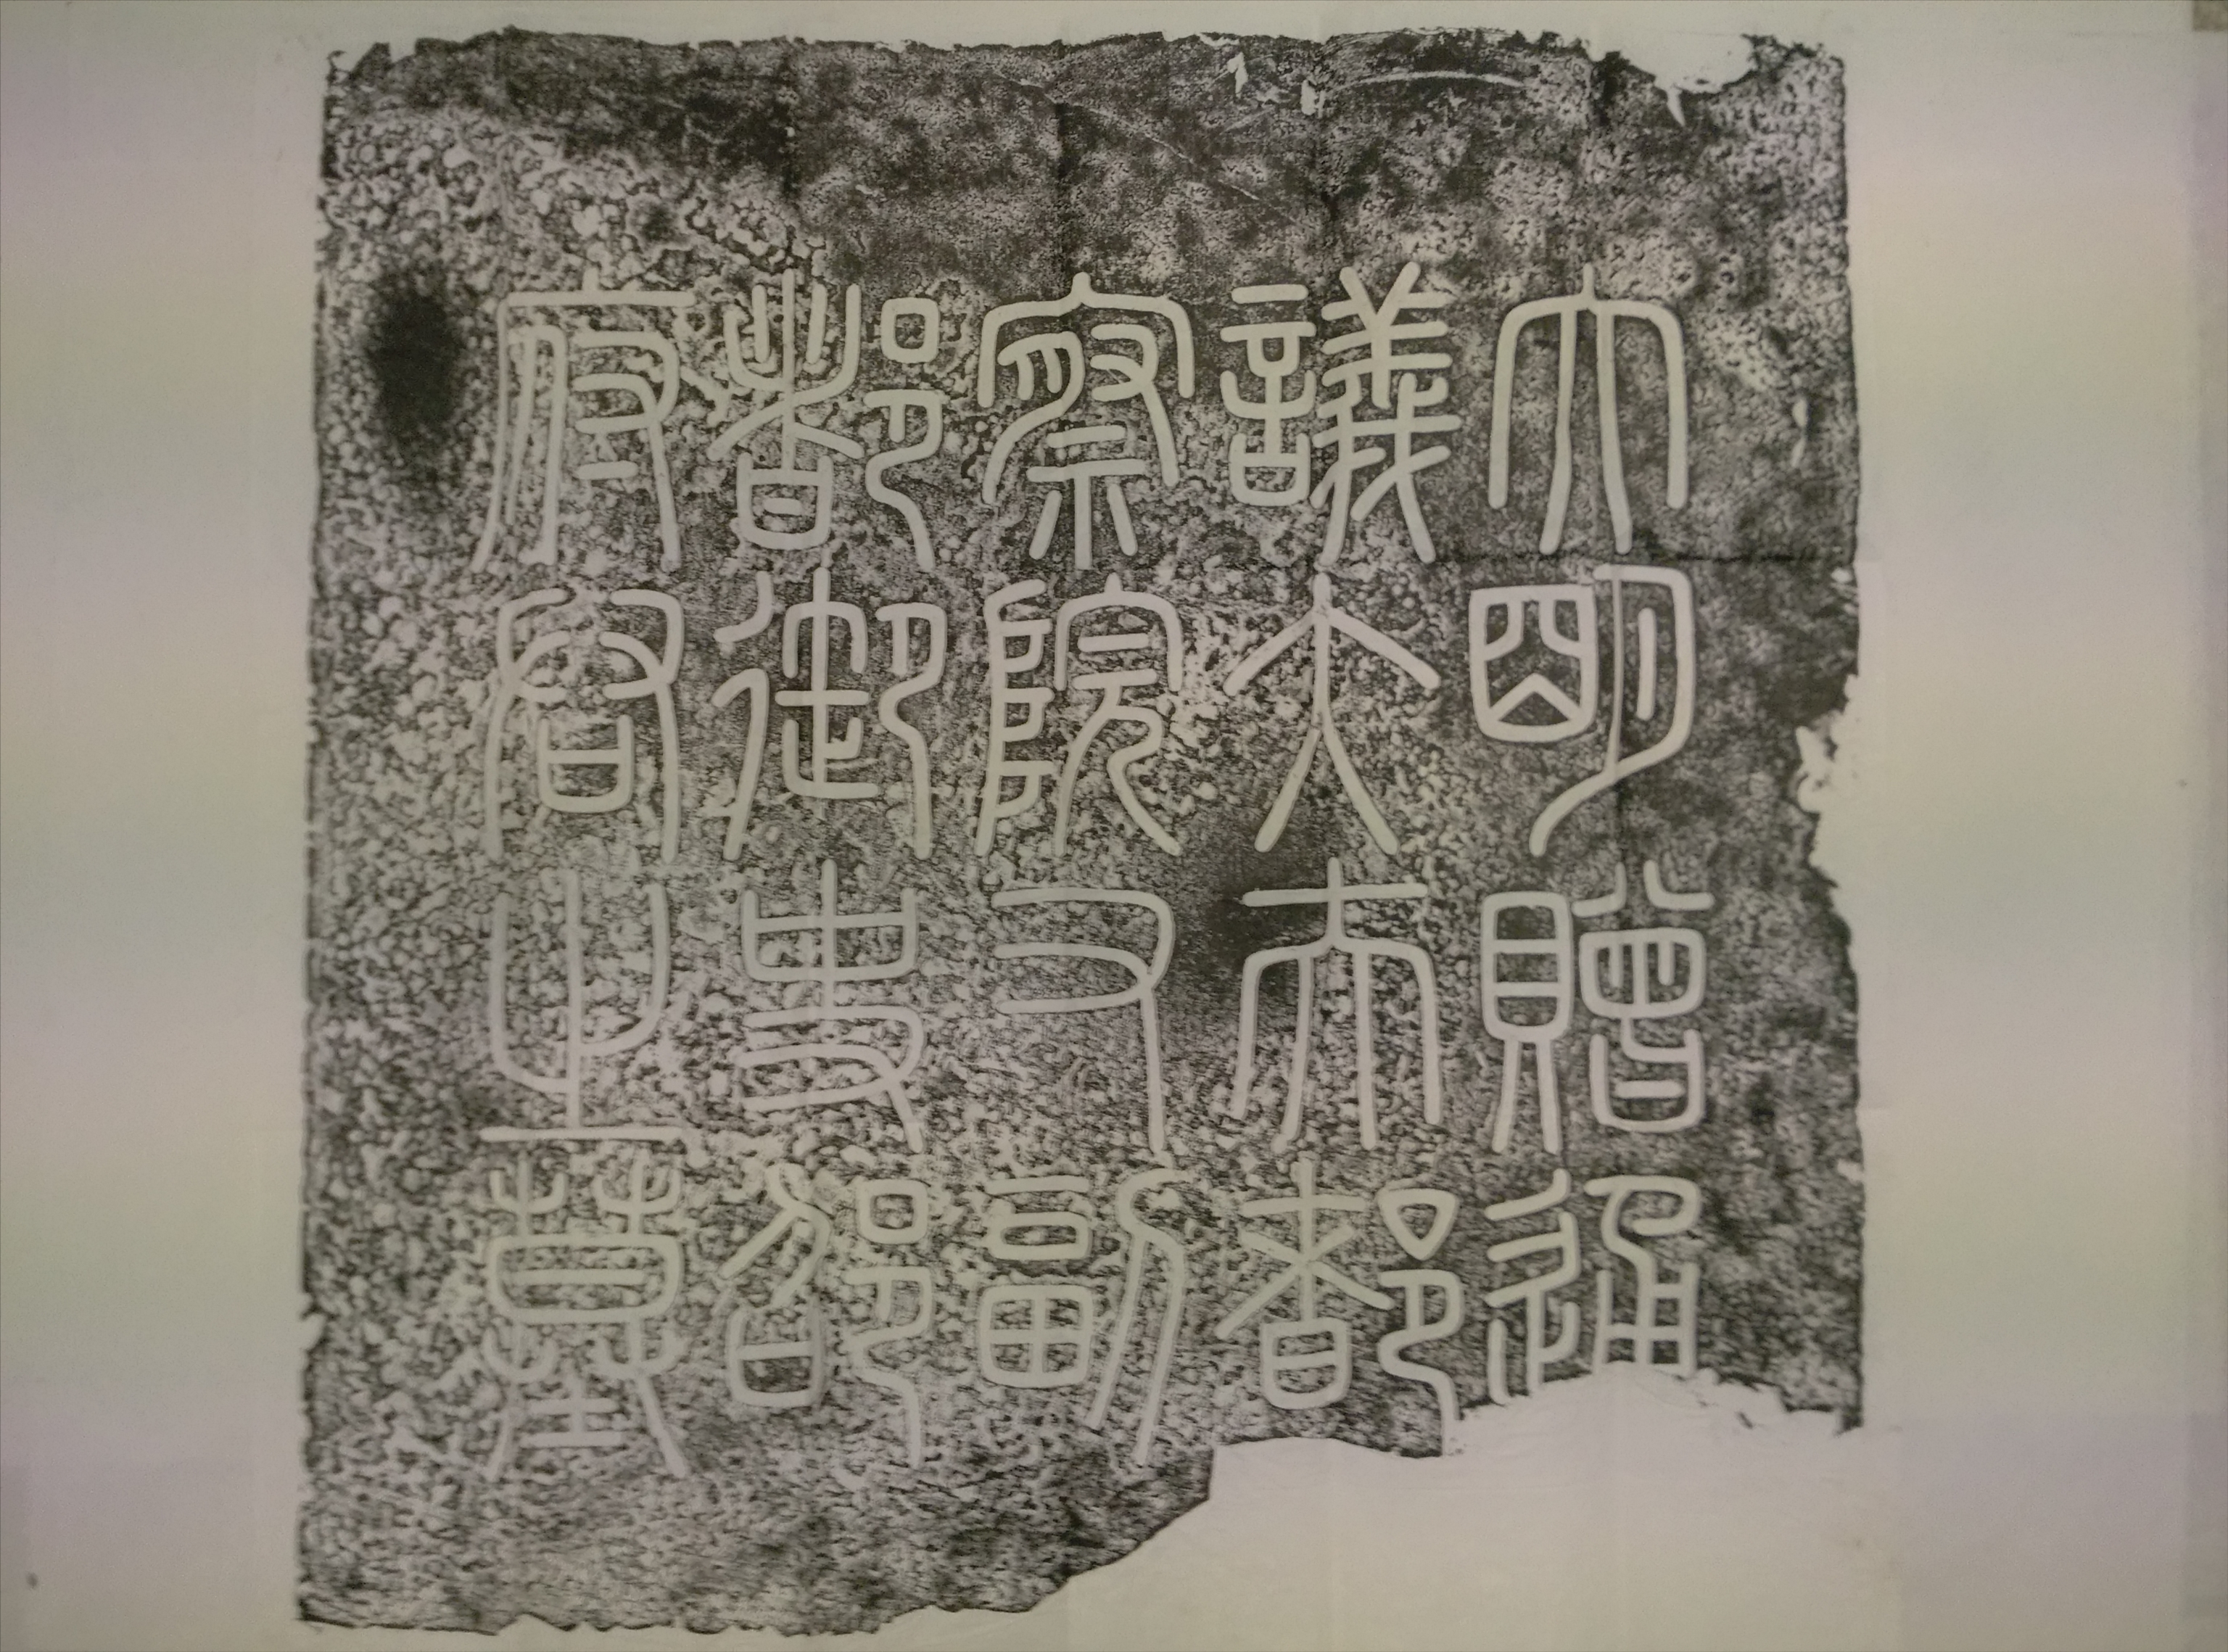 大明贈通
議大夫都
察院又副
都御史邵
府君之墓